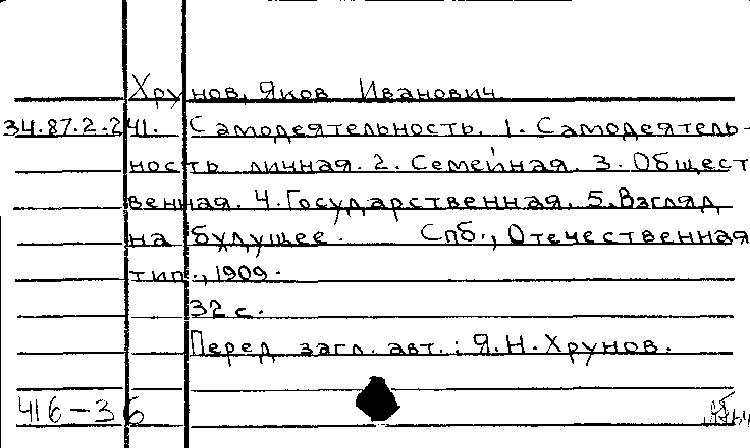 Хрунов, Яков Иванович
34.87.2.241. Самодеятельность. 1. Самодеятель-
ность личная. 2. Семейная. 3. Общест
венная. 4. Государственная. 5. Взгляд
на будущее. Спб., Отечественная
тип., 1909.
32 с.
Перед загл. авт.: Я.Н. Хрунов.
416-36